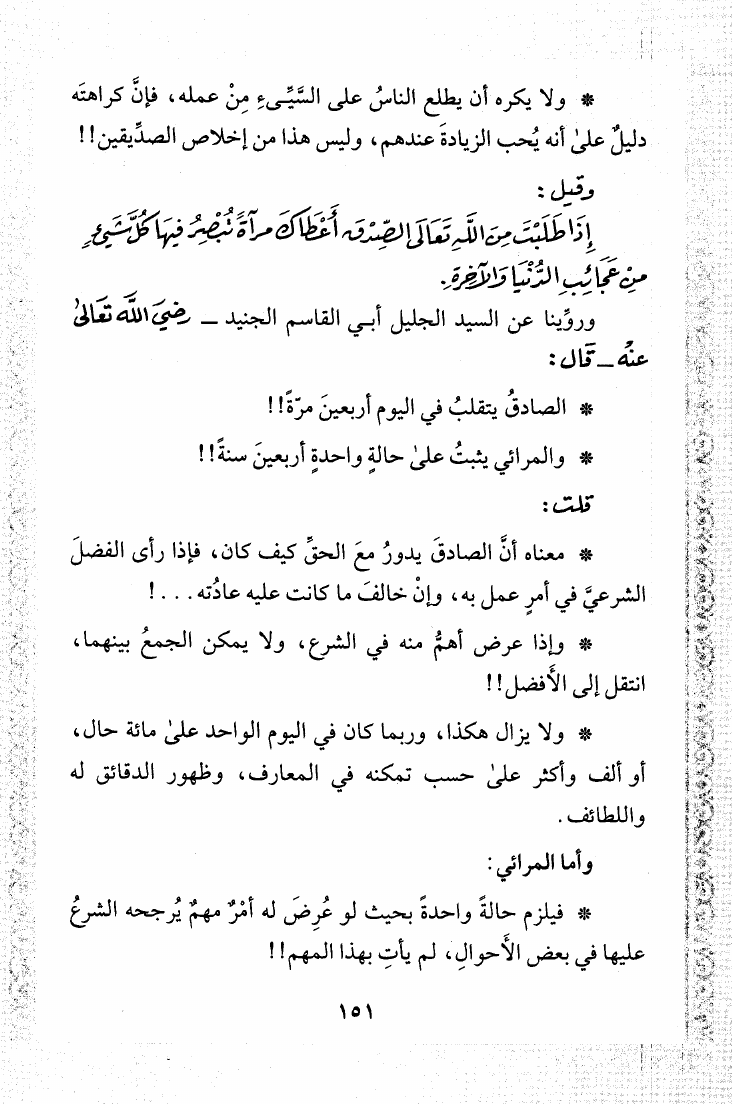 * ولا يكره أن يطلع الناسُ على السَّيِّيءِ مِنْ عمله، فإنَّ كراهتَه
دليلٌ علىٰ أنه يُحب الزيادةَ عندهم، وليس هذا من إخلاص الصدِّيقين!!
وقيل:
إِذَا طَلَبْتَ مِنَ اللَّهِ تَعَالَى الصِّدْقَ أَعْطَاكَ مرآةً تُبْصِرُ فِيهَا كُلَّ شَيْءٍ
مِنْ عَجَائِبِ الدُّنْيَا وَالآخِرَةِ.
وروِّينا عن السيد الجليل أبي القاسم الجنيد ـ رضيَ اللَّه تعَالىٰ
عنهُ ـ قَال:
* الصادقُ يتقلبُ في اليوم أربعينَ مرّةً!!
* والمرائي يثبتُ علىٰ حالةٍ واحدةٍ أربعينَ سنةً!!
قلت:
* معناه أنَّ الصادقَ يدورُ معَ الحقِّ كيف كان، فإذا رأى الفضلَ
الشرعيَّ في أمرٍ عمل به، وإنْ خالفَ ما كانت عليه عادُته...!
* وإذا عرض أهمُّ منه في الشرع، ولا يمكن الجمعُ بينهما،
انتقل إلى الأَفضل!!
* ولا يزال هكذا، وربما كان في اليوم الواحد علىٰ مائة حال،
أو ألف وأكثر علىٰ حسب تمكنه في المعارف، وظهور الدقائق له
واللطائف.
وأما المرائي:
* فيلزم حالةً واحدةً بحيث لو عُرِضَ له أمْرٌ مهمٌ يُرجحه الشرعُ
عليها في بعض الأَحوالِ، لم يأتِ بهذا المهم!!
١٥١